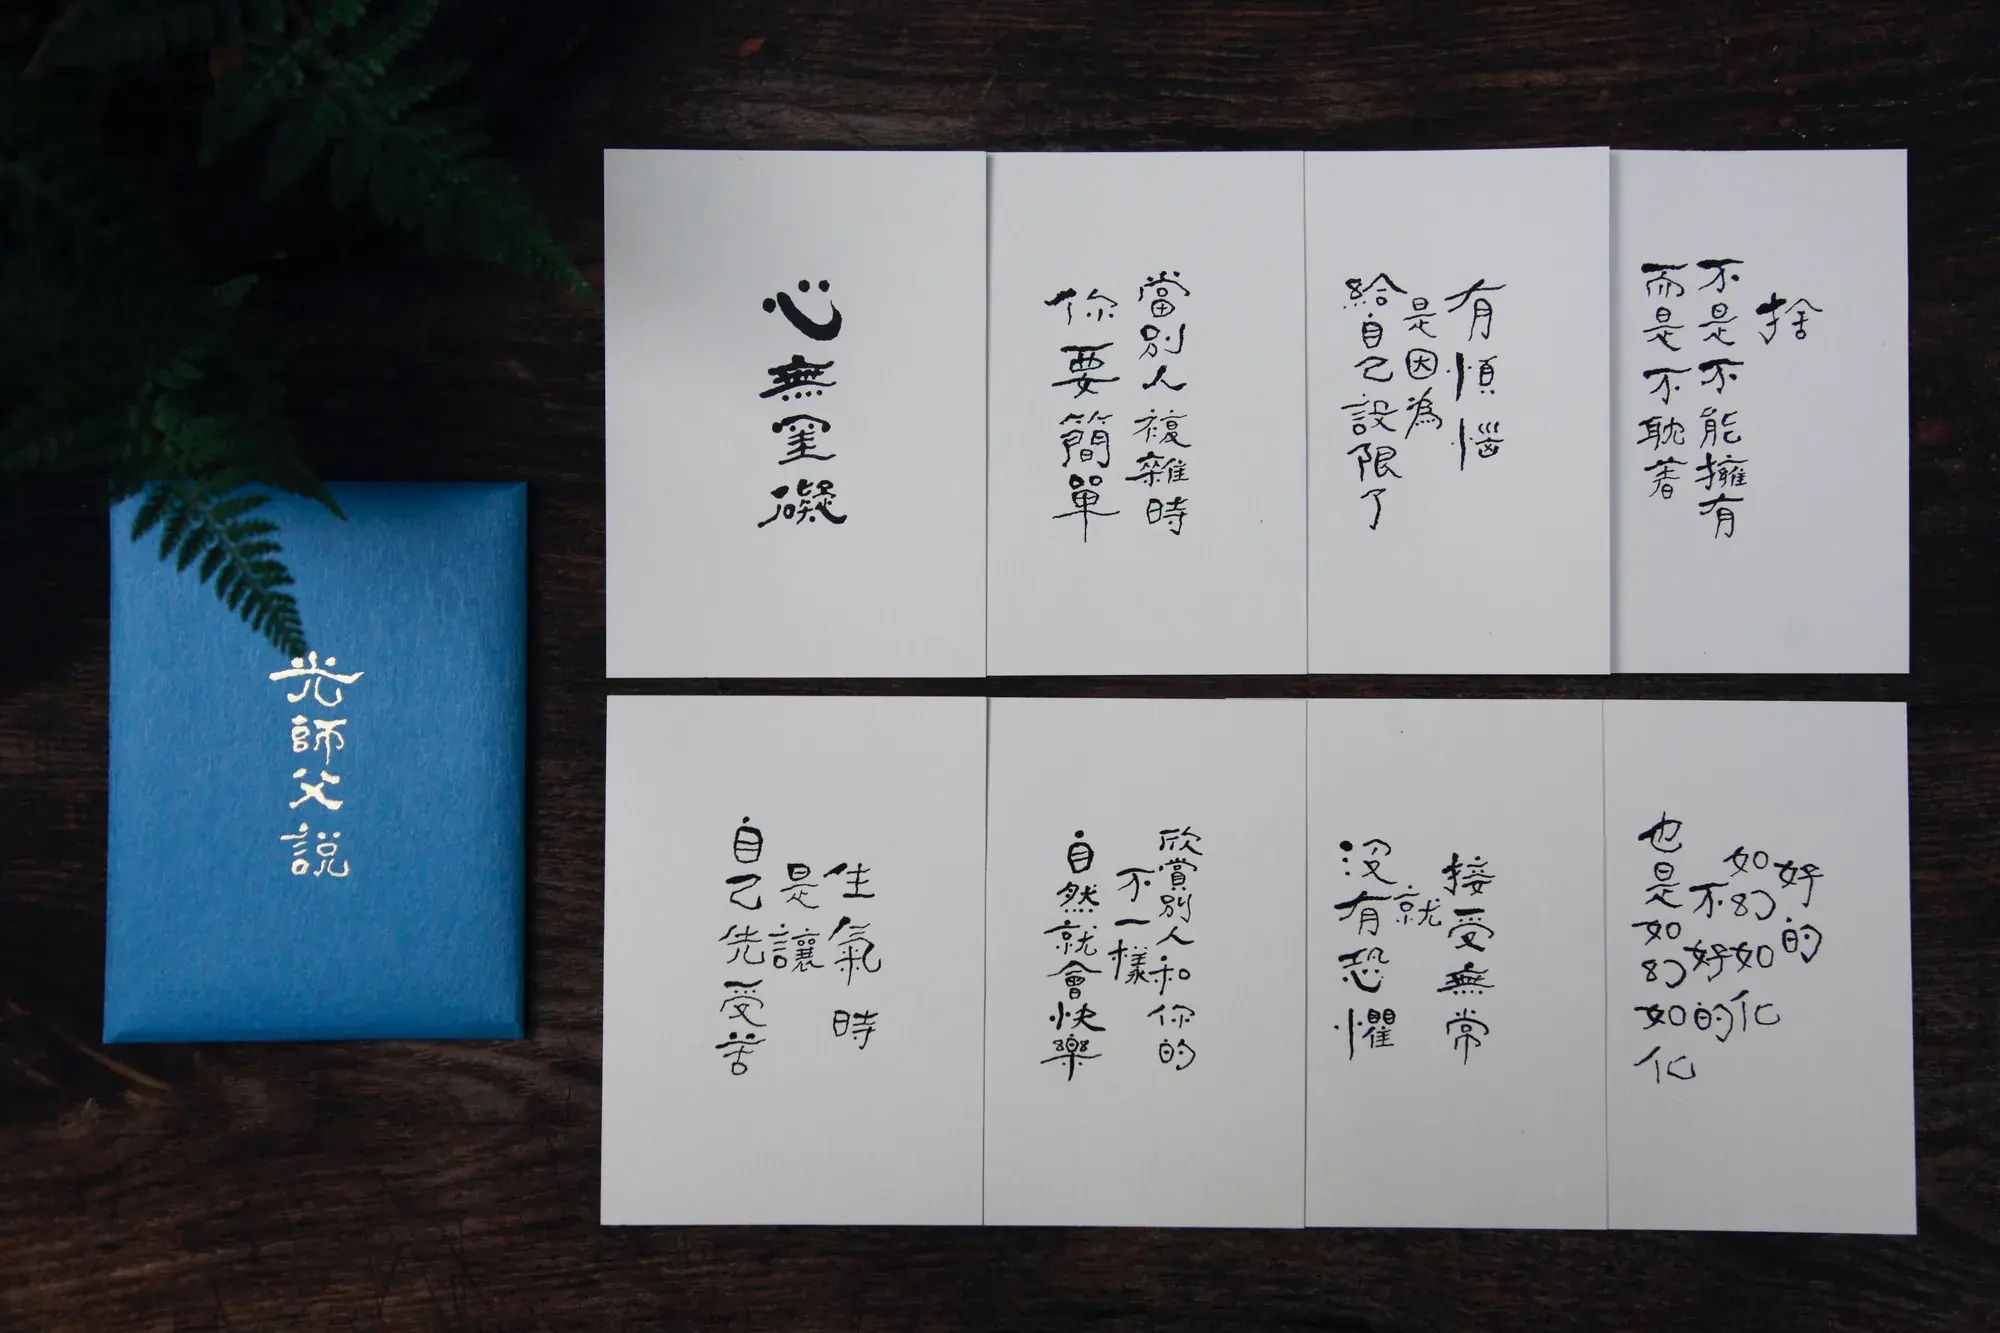 光師父說
心無罣礙
當別人複雜時
你要簡單
有煩惱
是因為
給自己設限了
捨
不是不能擁有
而是不耽著
生氣時
是讓
自己先受苦
欣賞別人和你的
不一樣
自然就會快樂
接受無常
就
沒有恐懼
好的
如幻如化
不好的
也是如幻如化